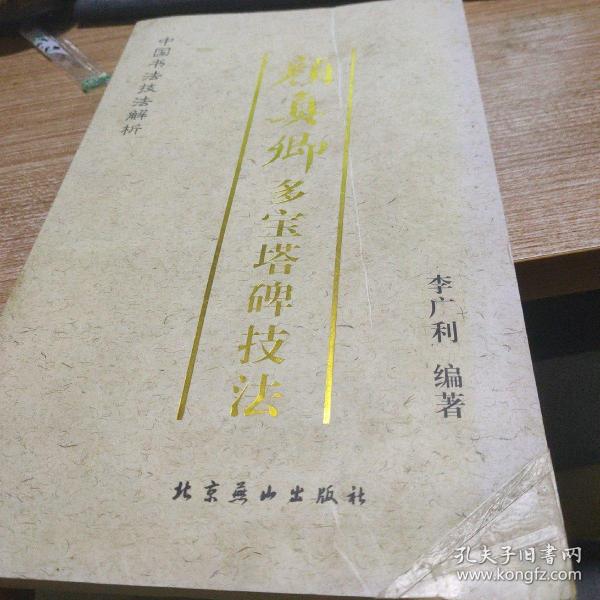 中国书法技法解析
颜真卿多宝塔碑技法
李广利 编著
北京燕山出版社
孔夫子旧书网
www.kongfz.com